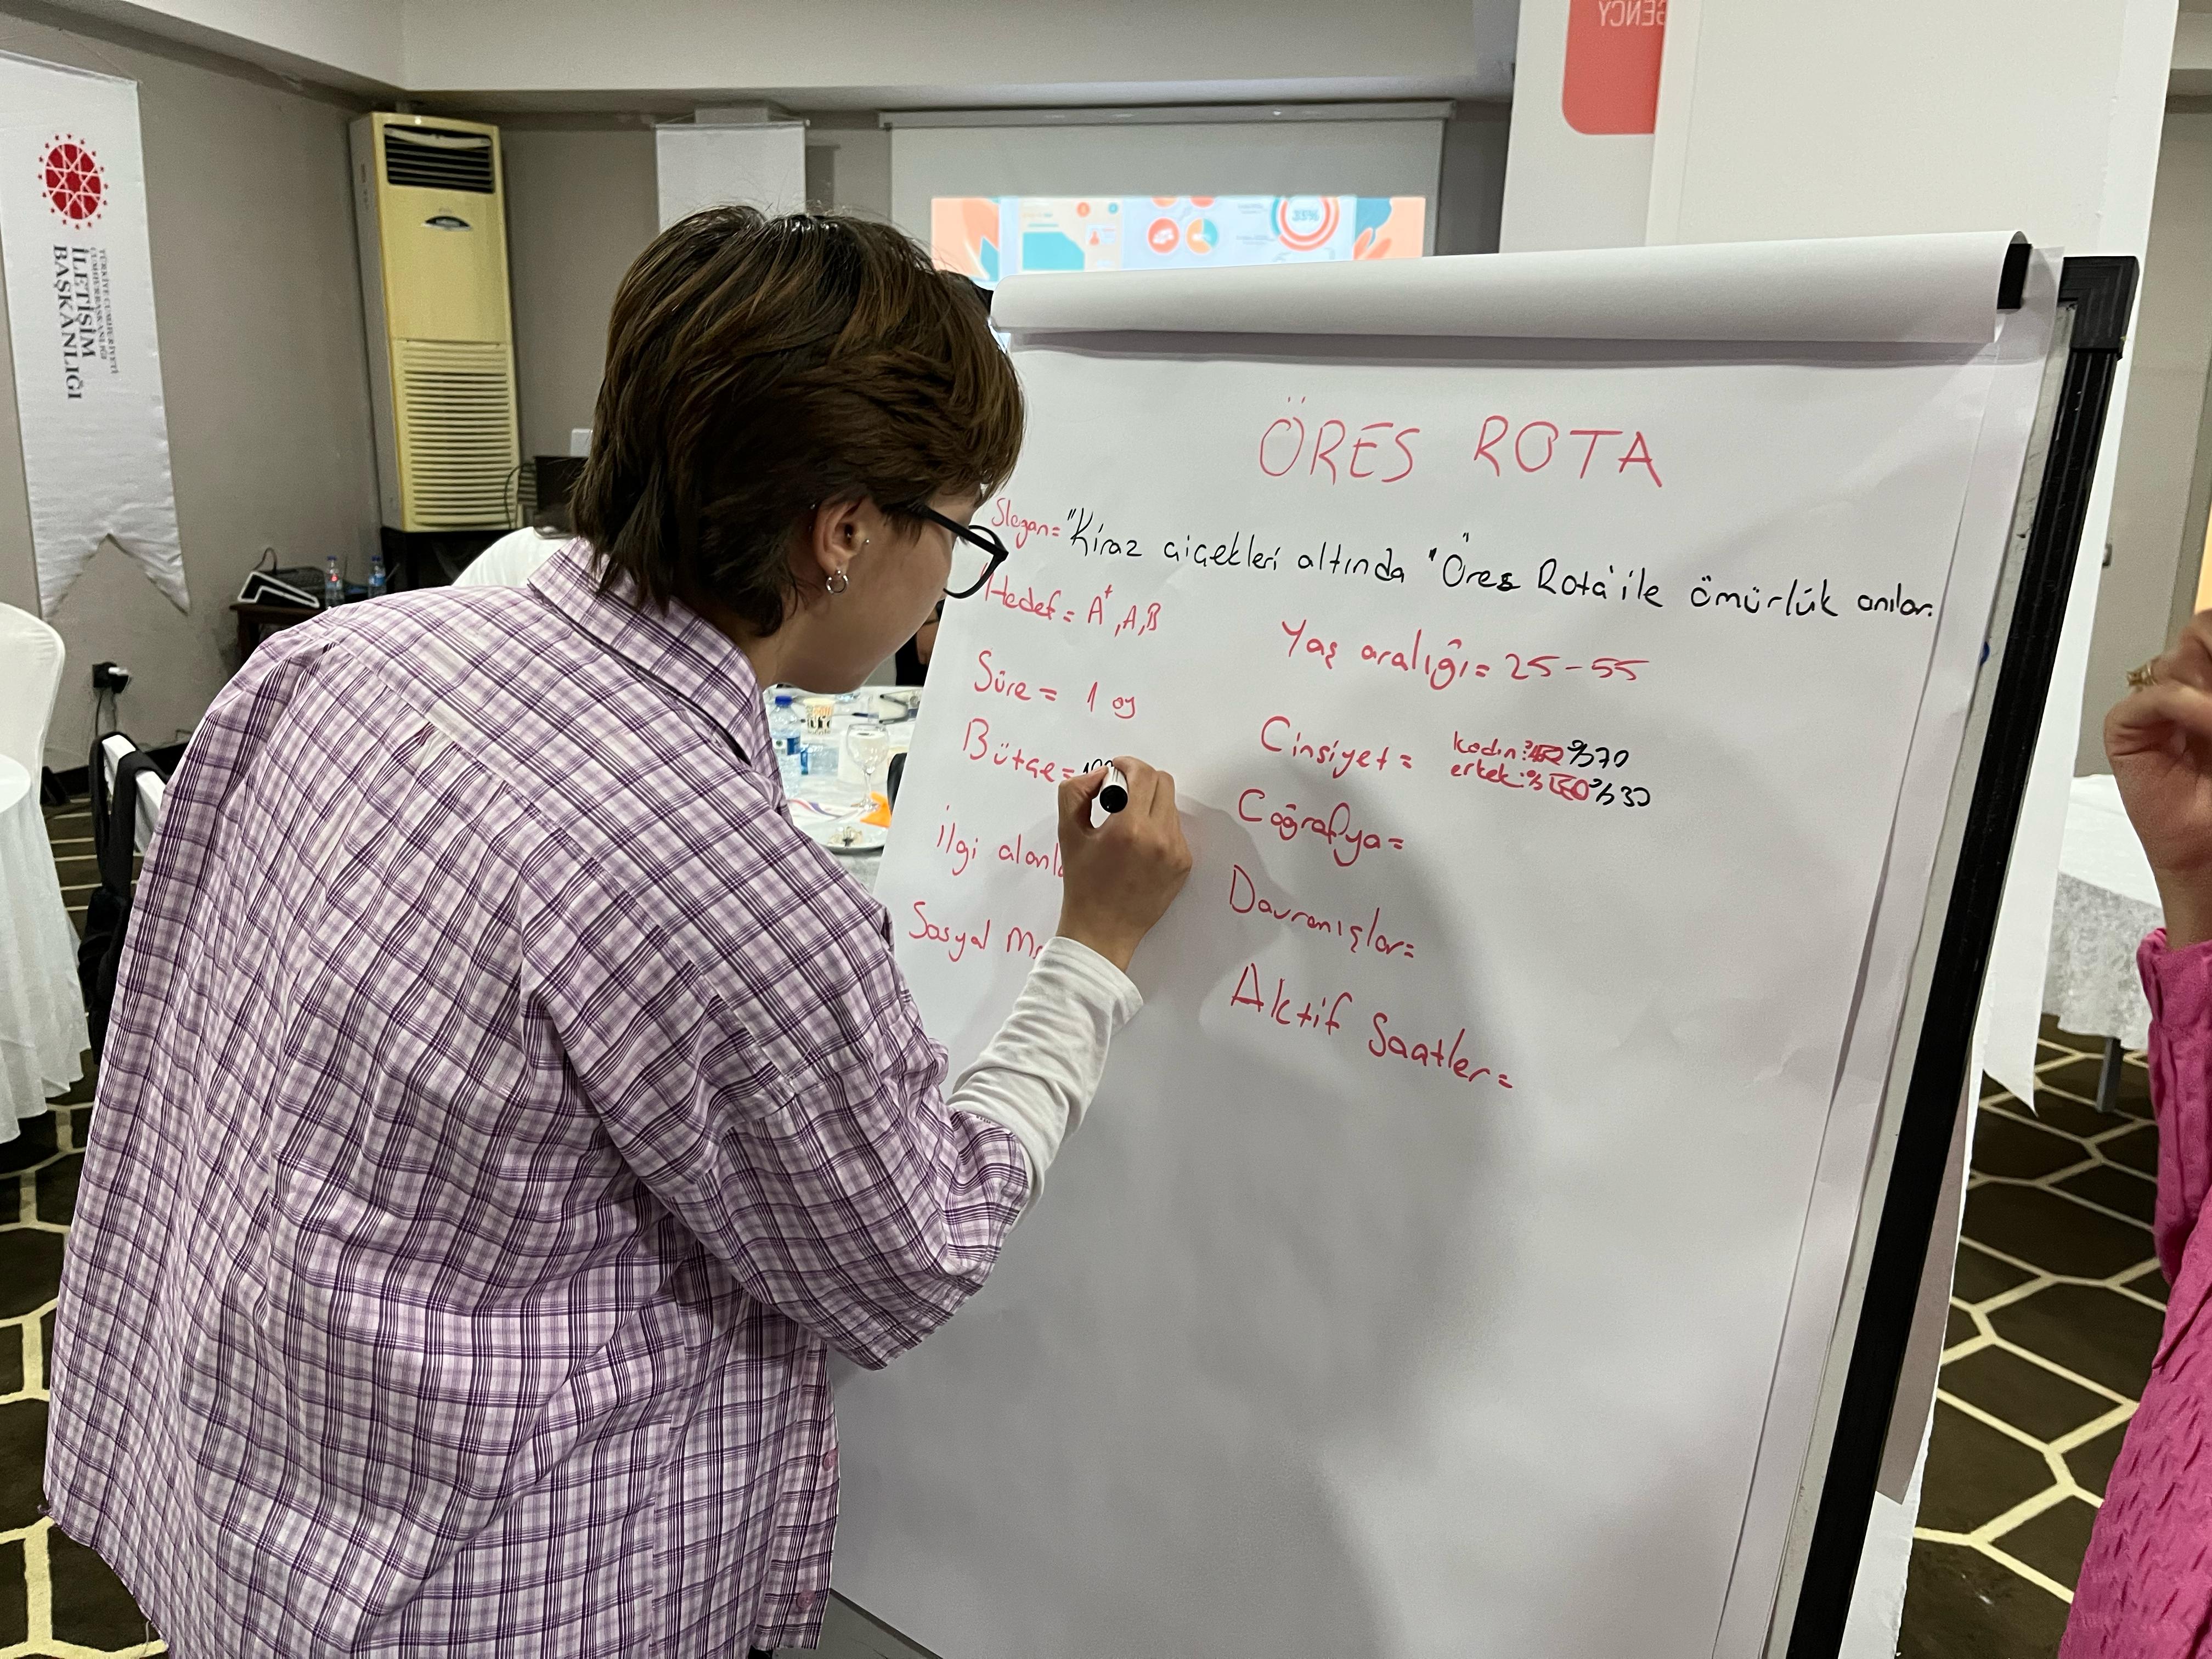 TÜRKİYE CUMHURİYETİ
CUMHURBAŞKANLIĞI
İLETİŞİM
BAŞKANLIĞI
GENCY
33%
ÖRES ROTA
Slogan= "Kiraz çiçekleri altında 'Öres Rota' ile ömürlük anılar."
Hedef= A+, A, B
Yaş aralığı= 25-55
Süre = 1 ay
Cinsiyet = kadın: %70
erkek: %30
Bütçe=
Coğrafya=
İlgi
Davranışlar=
Sosyal
Aktif Saatler=